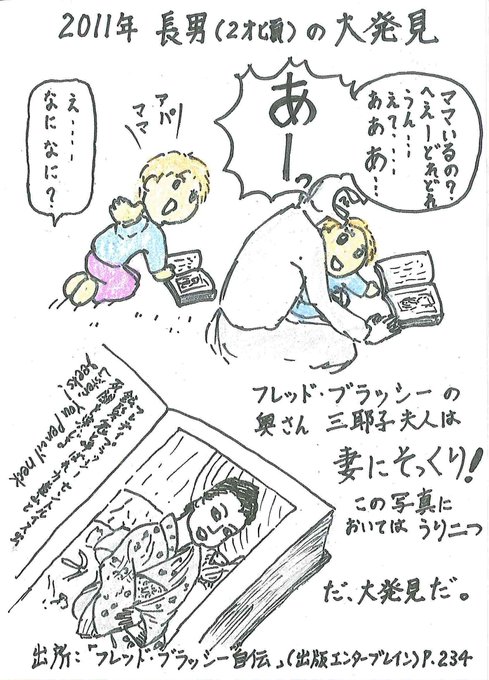 2011年 長男(2才頃)の大発見
ママいるの?
へえーどれどれ
うん……
えて……
ああ、あ…
あーっ
アパ!
ママ
え……
なになに?
フレッド・ブラッシーの
奥さん 三耶子夫人は
妻にそっくり!
この写真に
おいては うり二つ
だ、大発見だ。
Listen! You Pencil neck
geeks!
出所:「フレッド・ブラッシー自伝」(出版エンターブレイン)P.234